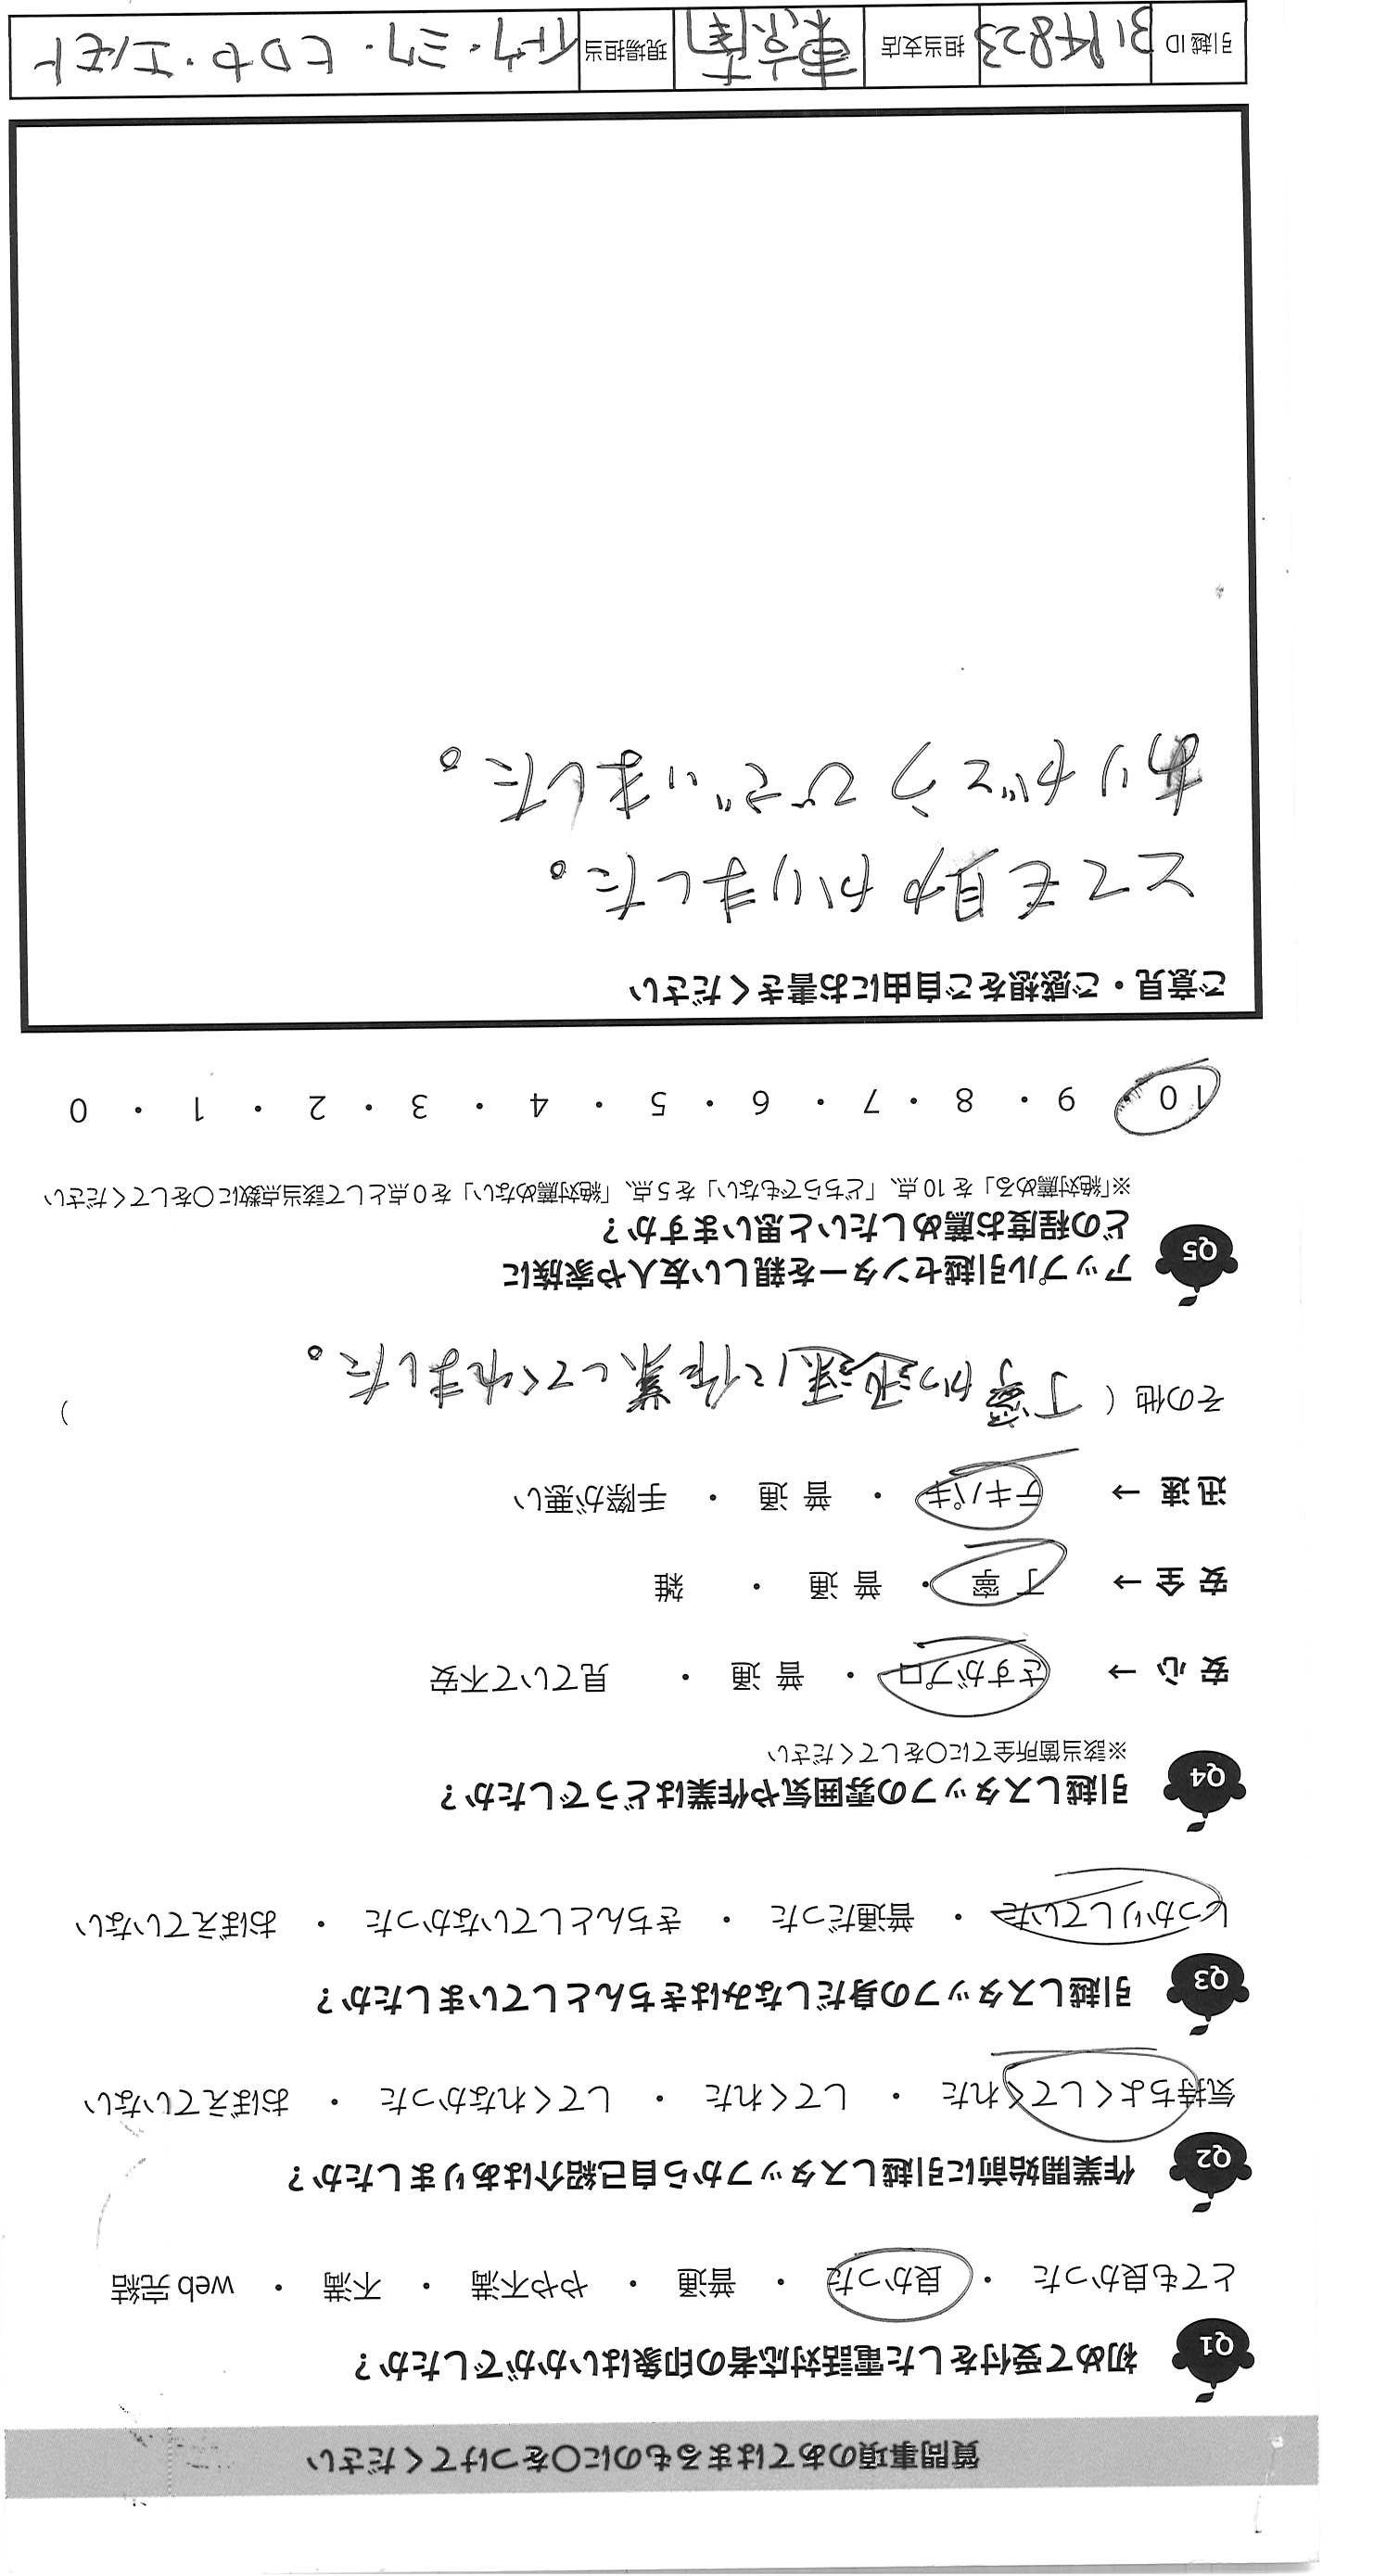 質問事項のあてはまるものに○をつけてください
Q1 初めて受付をした電話対応者の印象はいかがでしたか？
とても良かった ・ 良かった ・ 普通 ・ やや不満 ・ 不満 ・ web 完結
Q2 作業開始前に引越しスタッフから自己紹介はありましたか？
気持ちよくしてくれた ・ してくれた ・ してくれなかった ・ おぼえていない
Q3 引越しスタッフの身だしなみはきちんとしていましたか？
しっかりしていた ・ 普通だった ・ きちんとしていなかった ・ おぼえていない
Q4 引越しスタッフの雰囲気や作業はどうでしたか？
※該当箇所全てに○をしてください
安 心 → さすがプロ ・ 普 通 ・ 見ていて不安
安 全 → 丁 寧 ・ 普 通 ・ 雑
迅 速 → テキパキ ・ 普 通 ・ 手際が悪い
その他（ 丁寧かつ迅速に作業してくれました。 ）
Q5 アップル引越センターを親しい友人や家族に
どの程度お薦めしたいと思いますか？
※「絶対薦める」を 10 点、「どちらでもない」を 5 点、「絶対薦めない」を 0 点として該当点数に○をしてください
10 ・ 9 ・ 8 ・ 7 ・ 6 ・ 5 ・ 4 ・ 3 ・ 2 ・ 1 ・ 0
ご意見・ご感想をご自由にお書きください
とても助かりました。
ありがとうございました。
引越 ID 3194823 担当支店 東京南 現場担当 イトウ・ミワ・ヒロセ・エノモト